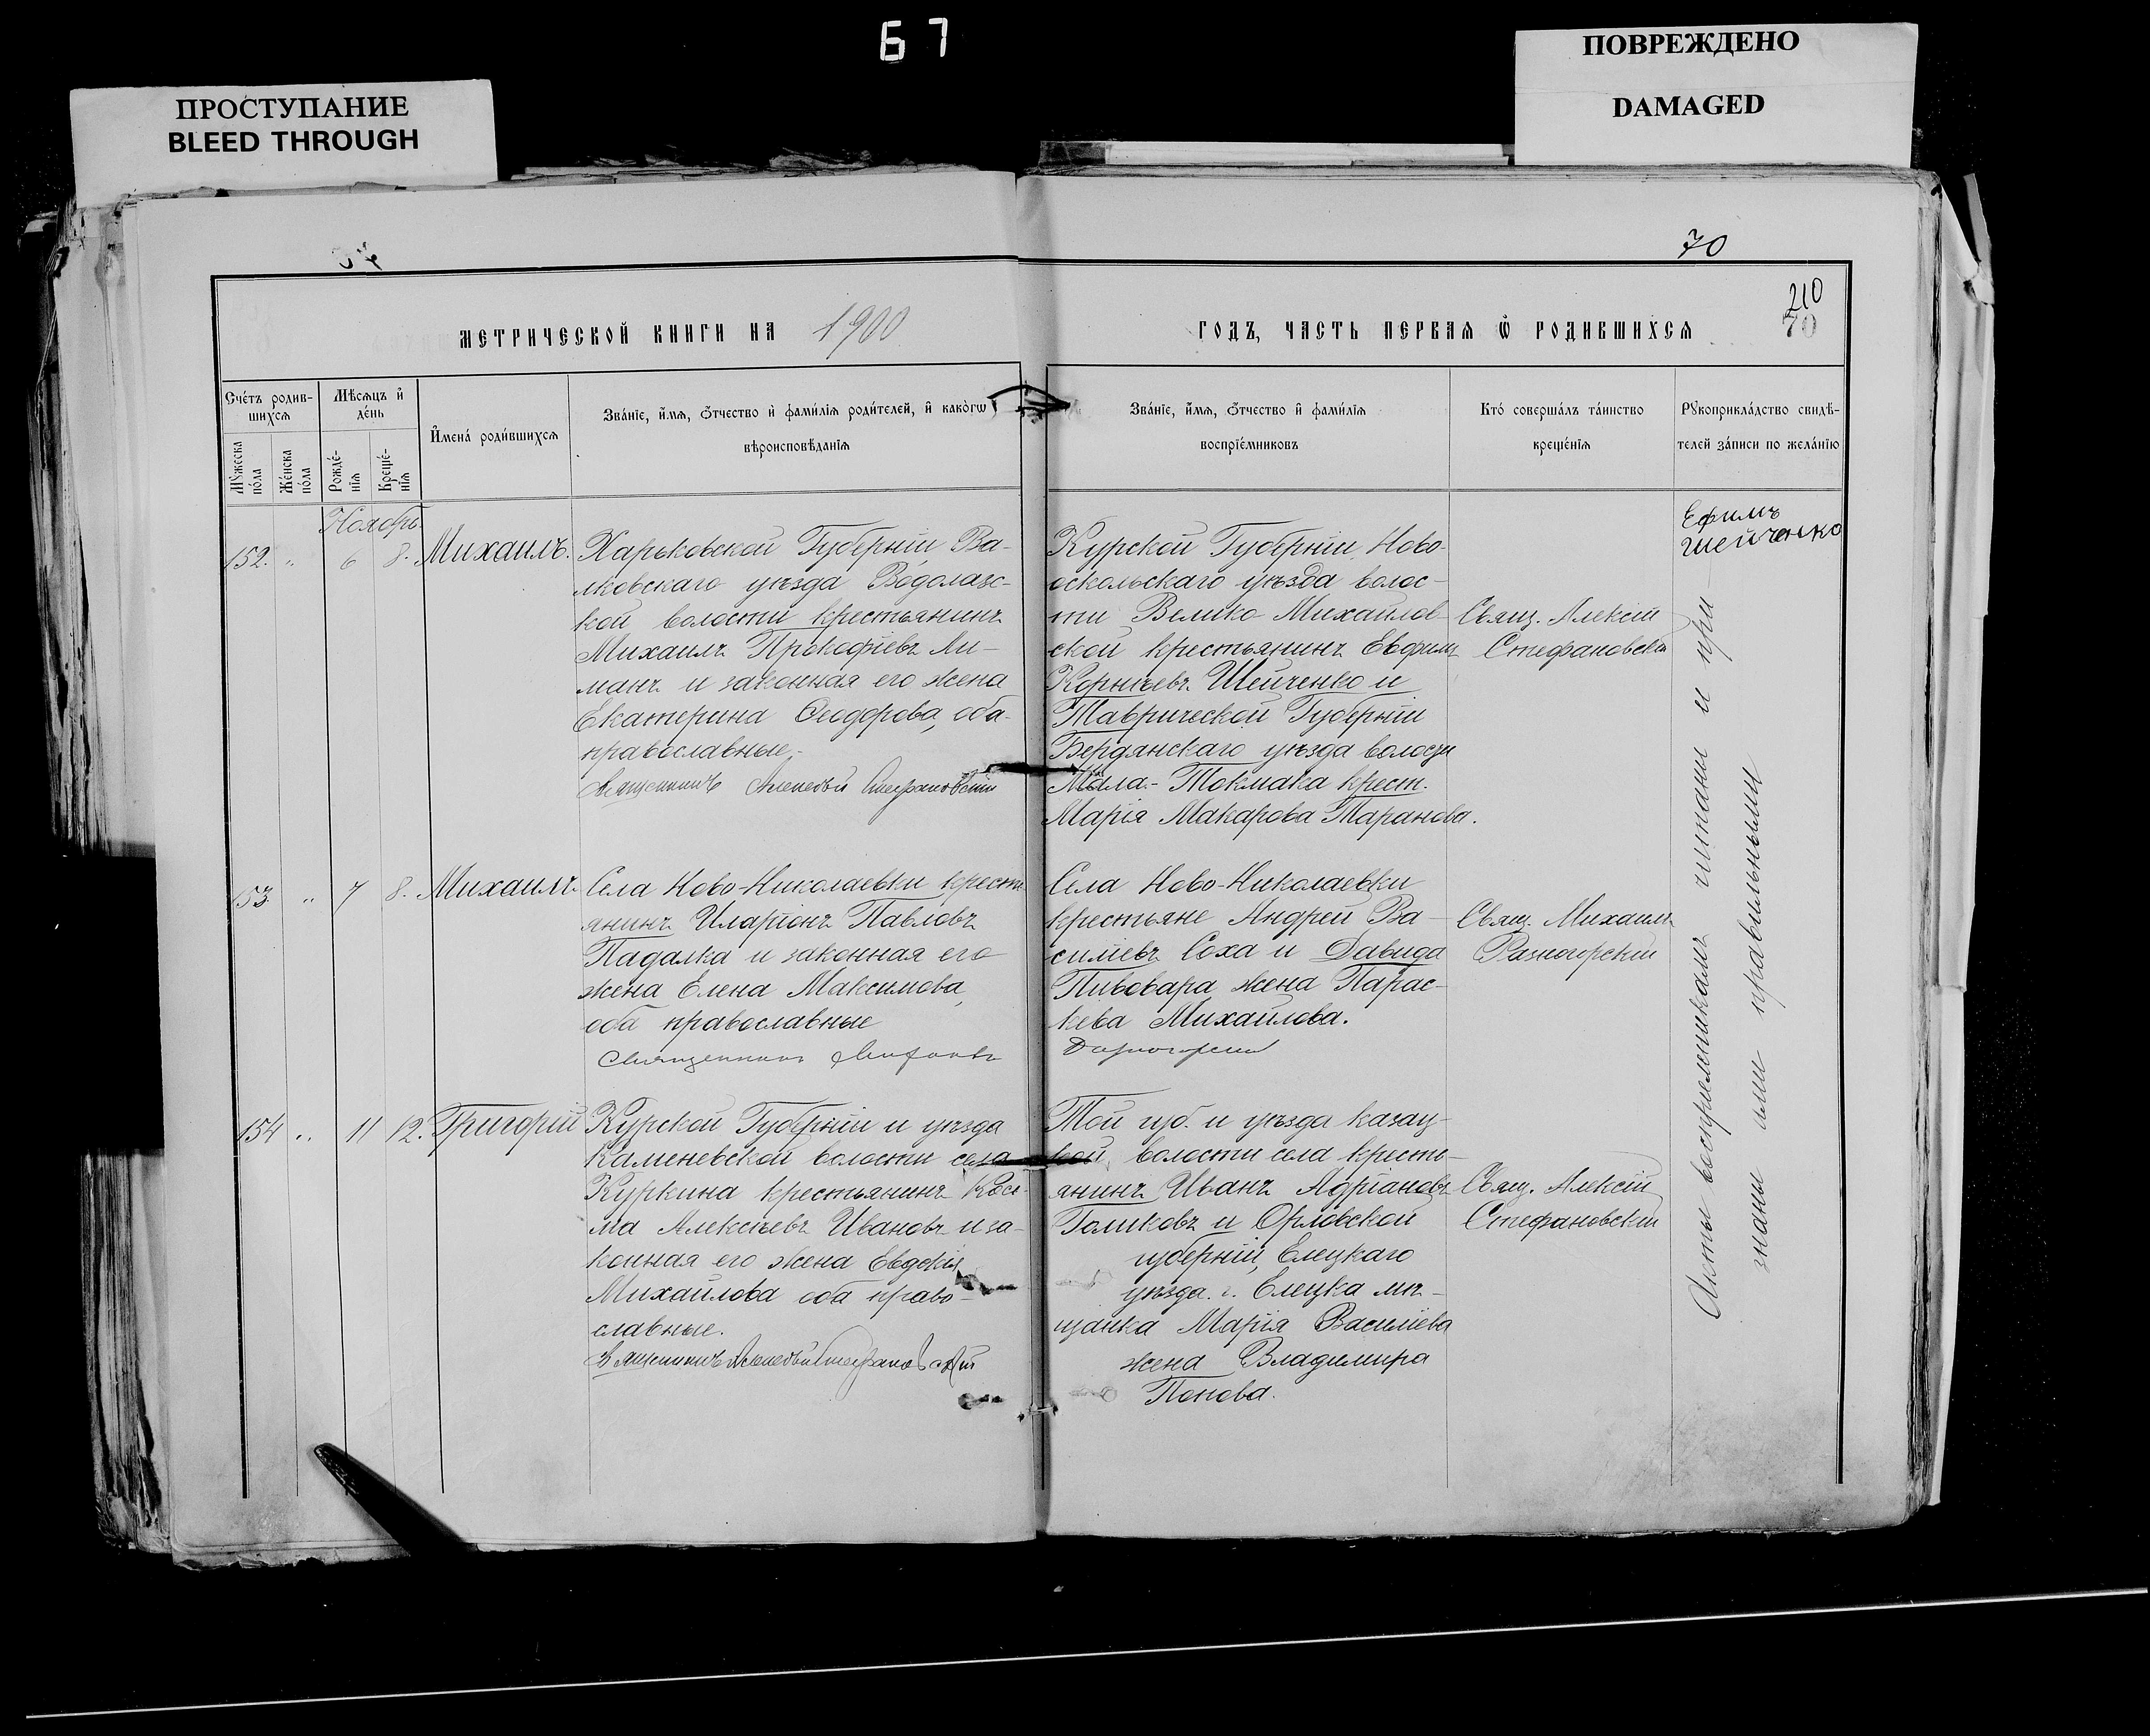 67
ПРОСТУПАНИЕ
BLEED THROUGH
ПОВРЕЖДЕНО
DAMAGED
70
210
70
МЕТРИЧЕСКОЙ КНИГИ НА 1900
ГОДЪ, ЧАСТЬ ПЕРВАѦ Ѿ РОДИВШИХСѦ
Счетъ родив-
шихсѧ
Мꙋжеска
пола
Женска
пола
Мѣсѧцъ и
день
Рожде-
нїѧ
Креще-
нїѧ
Имена родившихсѧ
Званїе, имѧ, ѻтчество и фамилїѧ родителей, и какогѡ
вѣроисповѣданїѧ
Званїе, имѧ, ѻтчество и фамилїѧ
воспрїемниковъ
Кто совершалъ таинство
крещенїѧ
Рꙋкоприкладство свидѣ-
телей записи по желанїю
Ноябрь
152. " 6 8. Михаилъ.
Харьковской Губерніи, Ва-
лковскаго уѣзда Водолазс-
кой волости крестьянинъ
Михаилъ Прокофіевъ Ли-
манъ и законная его жена
Екатерина Ѳеодорова, оба
православные.
Священникъ Алексѣй Стефановскій
Курской Губерніи, Ново-
оскольскаго уѣзда волос-
ти Велико-Михайлов-
ской крестьянинъ Евфимъ
Корнѣевъ Шейченко и
Таврической Губерніи
Бердянскаго уѣзда волости
Мала-Токмака крест.
Марія Макарова Таранова.
Свящ. Алексій
Стефановскій
Ефимъ
Шейченко
153 " 7 8. Михаилъ
Села Ново-Николаевки кресть
янинъ Иларіонъ Павловъ
Падалка и законная его
жена Елена Максимова,
оба православные
Священникъ Михаилъ
Села Ново-Николаевки
крестьяне Андрей Ва-
силіевъ Соха и Давида
Пивовара жена Парас-
кева Михайлова.
Разногорскій
Свящ. Михаилъ
Разногорскій
154 " 11 12. Григорій
Курской Губерніи и уѣзда
Каменевской волости села
Куркина крестьянинъ Кось-
ма Алексѣевъ Ивановъ и за-
конная его жена Евдокія
Михайлова оба право-
славные.
Священникъ Алексѣй Стефановскій
Той губ. и уѣзда казац-
кой волости села кресть-
янинъ Иванъ Адріановъ
Голиковъ и Орловской
губерніи, Елецкаго
уѣзда. г. Елецка мѣ-
щанка Марія Василіева
жена Владимира
Попова.
Свящ. Алексій
Стефановскій
Акты воспріемниками читаны и при
знаны ими правильными